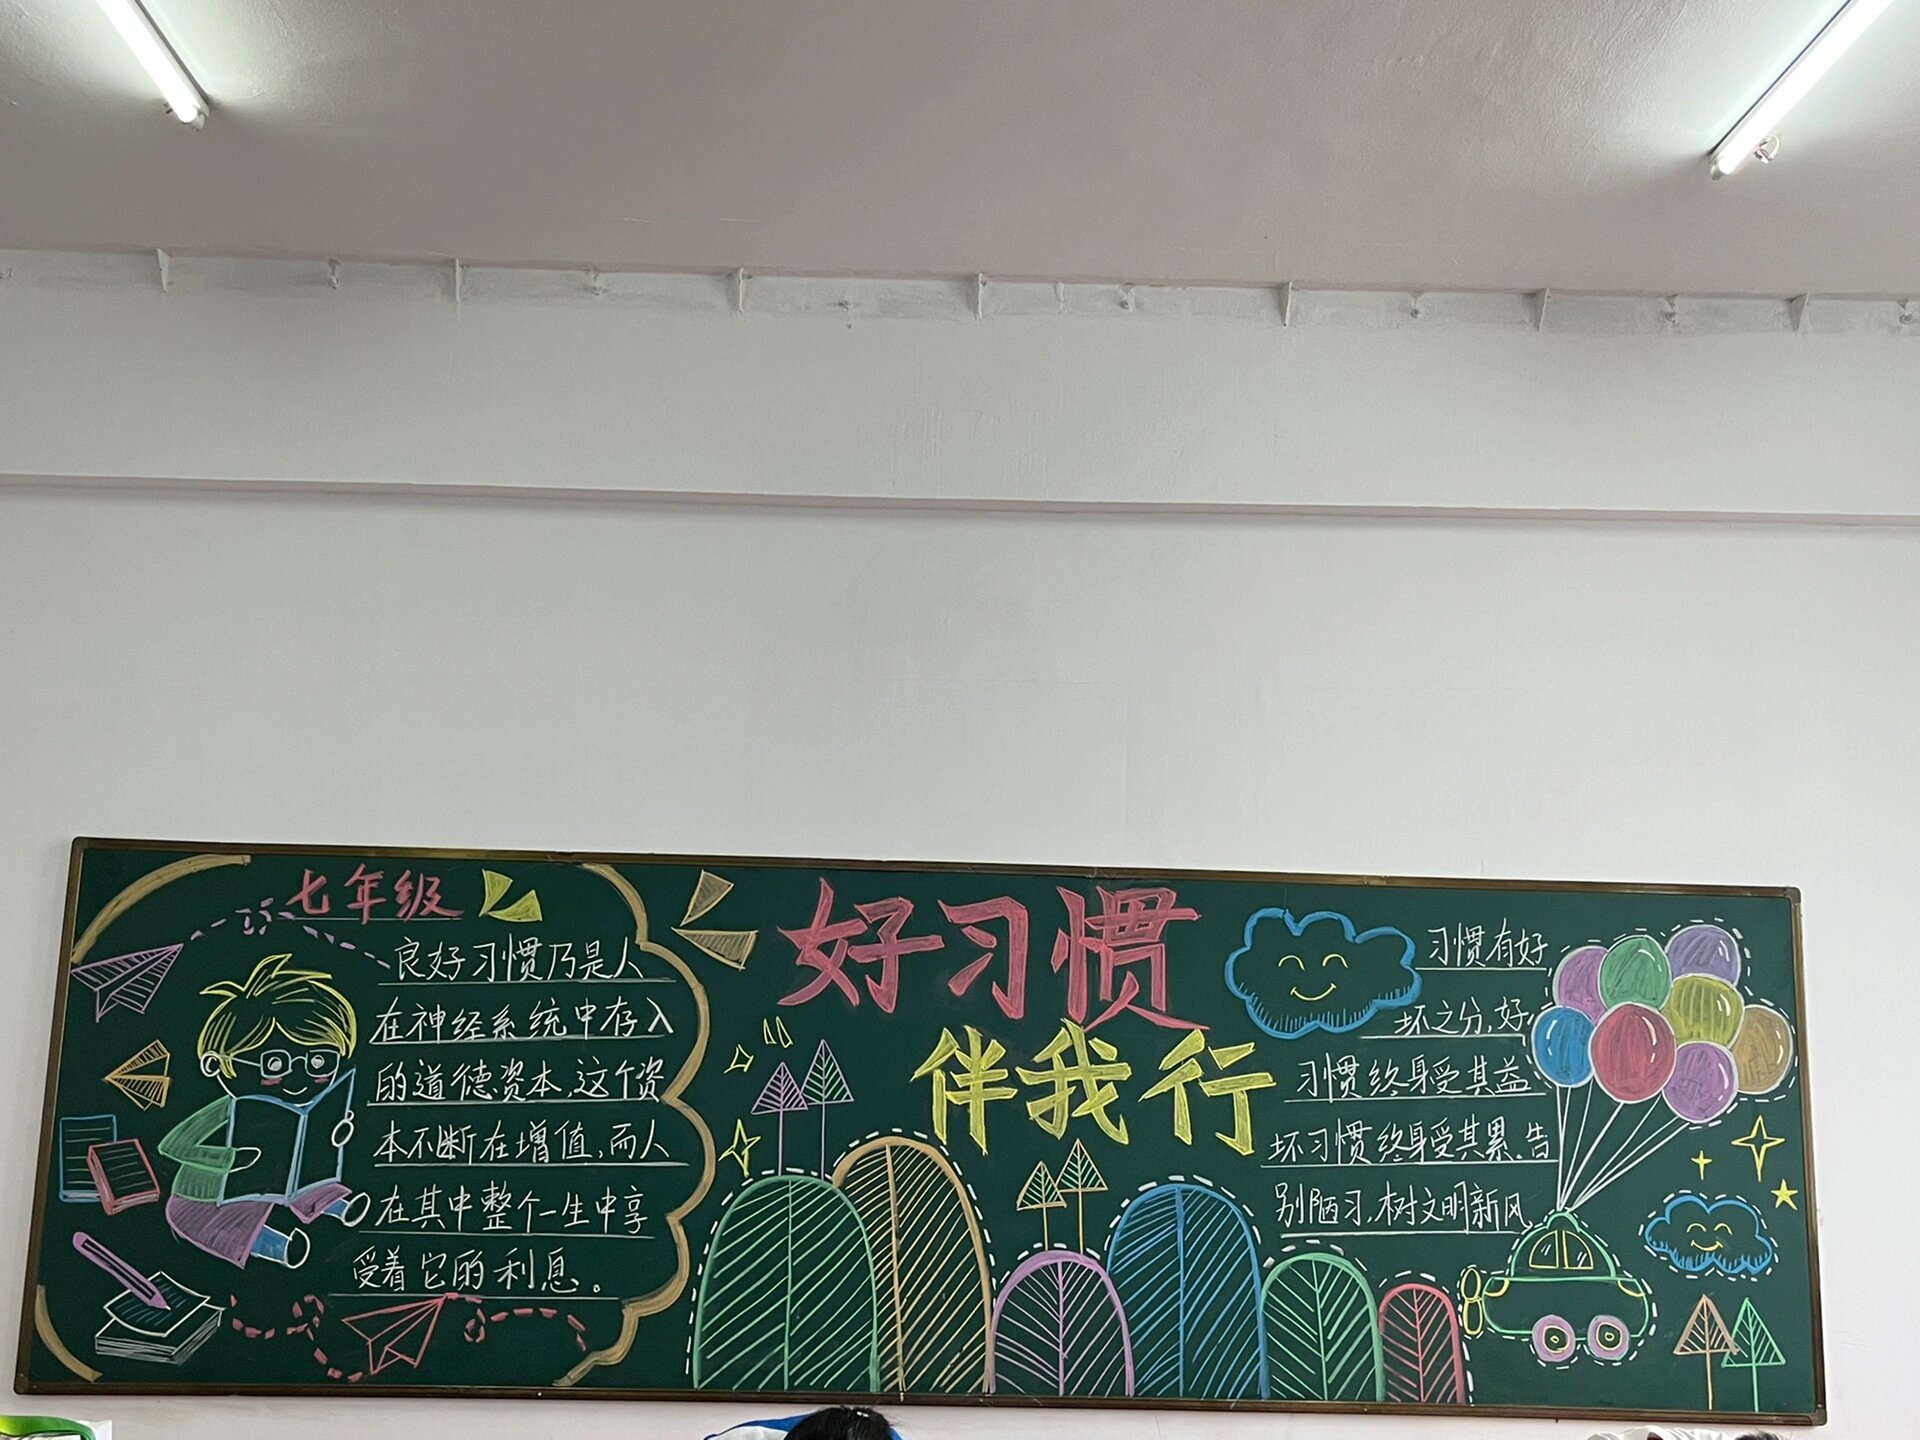 七年级
良好习惯乃是人
在神经系统中存入
的道德资本,这个资
本不断在增值,而人
在其中整个一生中享
受着它的利息。
好习惯
伴我行
习惯有好
坏之分,好
习惯终身受其益
坏习惯终身受其累.告
别陋习,树文明新风